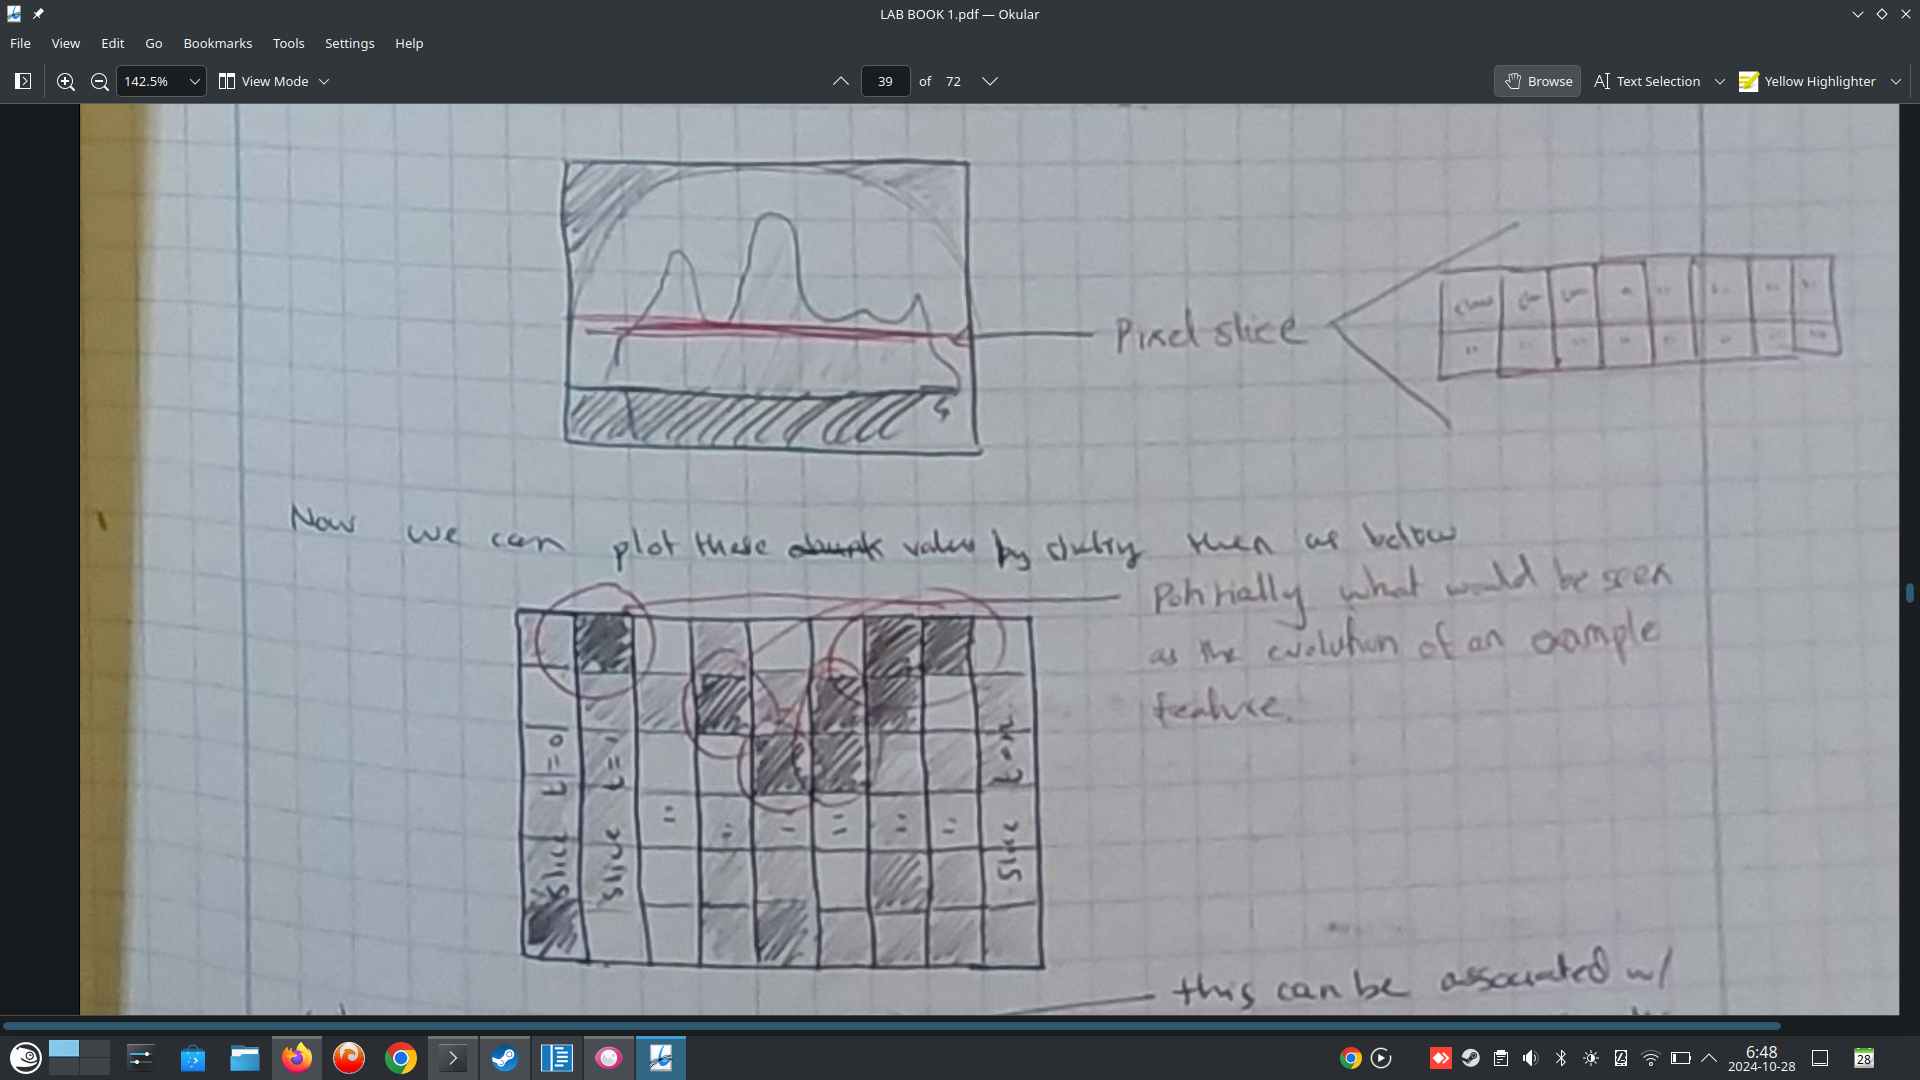 LAB BOOK 1.pdf — Okular
File View Edit Go Bookmarks Tools Settings Help
142.5% View Mode 39 of 72 Browse Text Selection Yellow Highlighter
Pixel slice
Now we can plot these chunk values by them as below
what would be seen
as the evolution of an example
feature.
Slice t=0
Slice t=1
Slice t=n
this can be associated w/
6:48
2024-10-28
28